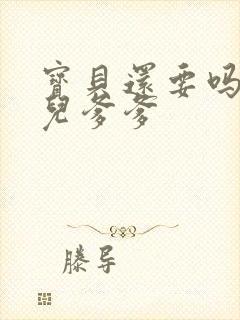 寶貝還要嗎
兒爹爹
滕导